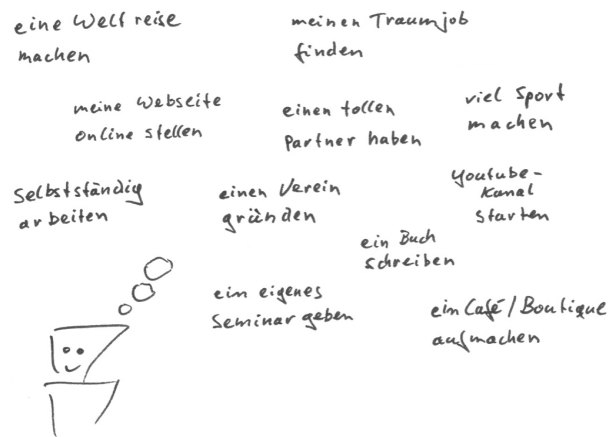 eine Weltreise
machen
meinen Traumjob
finden
meine Webseite
online stellen
einen tollen
Partner haben
viel Sport
machen
Selbstständig
arbeiten
einen Verein
gründen
Youtube-
Kanal
starten
ein Buch
schreiben
ein eigenes
Seminar geben
ein Café/Boutique
aufmachen